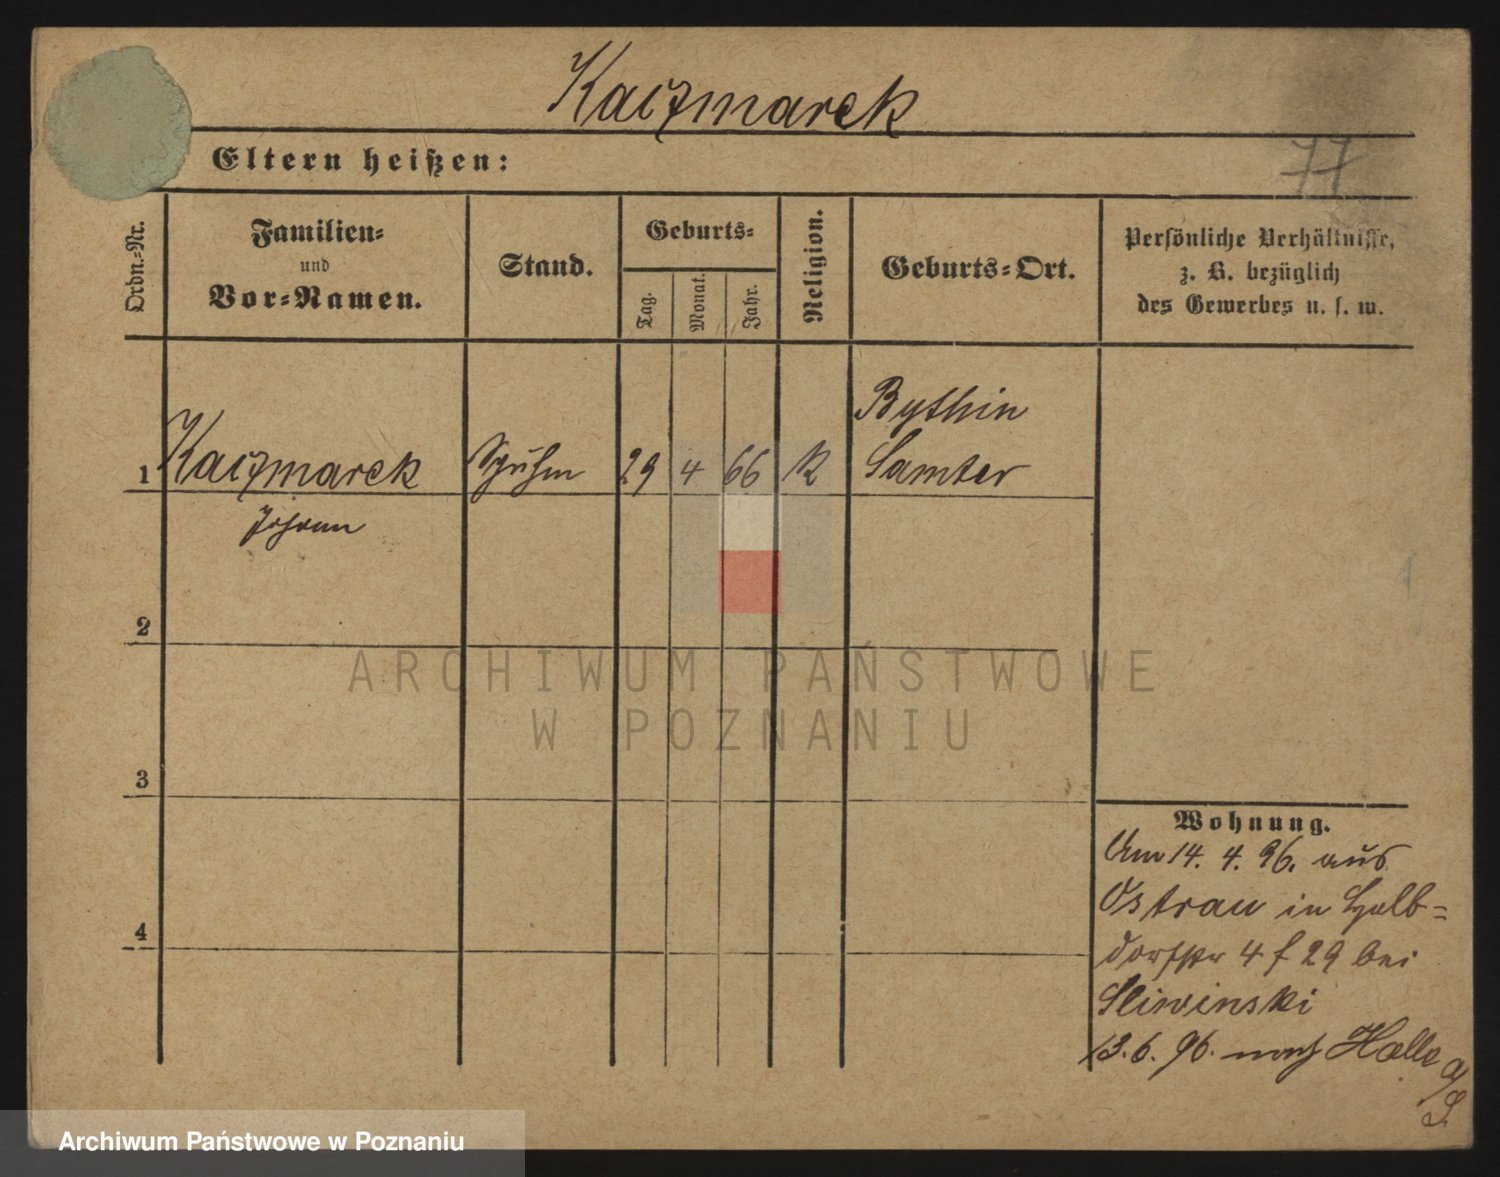 Kaczmarek
77
Eltern heißen:
Ordn.-Nr.
Familien-
und
Vor-Namen.
Stand.
Geburts-
Tag.
Monat.
Jahr.
Religion.
Geburts-Ort.
Persönliche Verhältnisse,
z. B. bezüglich
des Gewerbes u. s. w.
1
Kaczmarek
Johann
29
4
66
K
Bythin
Samter
2
3
4
Wohnung.
Am 14. 4. 96. aus
Ostrau in Halb-
dorfstr 4 f 29 bei
Sliwinski
13. 6. 96. nach Halle a/S.
ARCHIWUM PAŃSTWOWE
W POZNANIU
Archiwum Państwowe w Poznaniu